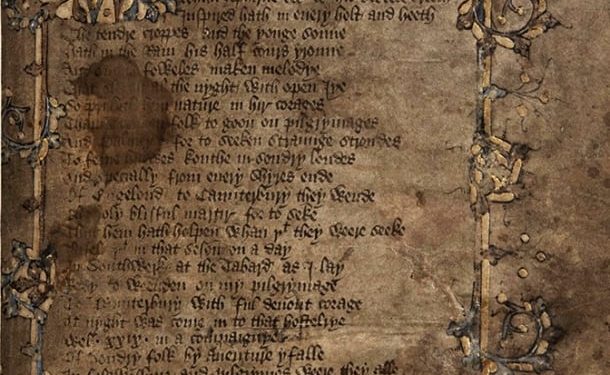 Inspired hath in euery holt and heeth
The tendre croppes and the yonge sonne
Hath in the Ram his half cours yronne
foweles maken melodye
al the nyght with open Iye
So priketh hem nature in hir corages
folk to goon on pilgrymages
And for to seeken straunge strondes
To ferne halwes kouthe in sondry londes
And specially from euery shyres ende
Of Engelond to Caunterbury they wende
The holy blisful martir for to seke
That hem hath holpen whan þt they weere seeke
Bifel þt in that seson on a day
In Southwerk at the Tabard as I lay
Redy to wenden on my pilgrymage
To Caunterbury with ful deuout corage
At nyght was come in to that hostelrye
Wel .xxix. in a compaignye
Of sondry folk by auenture yfalle
and pilgrymes weere they alle